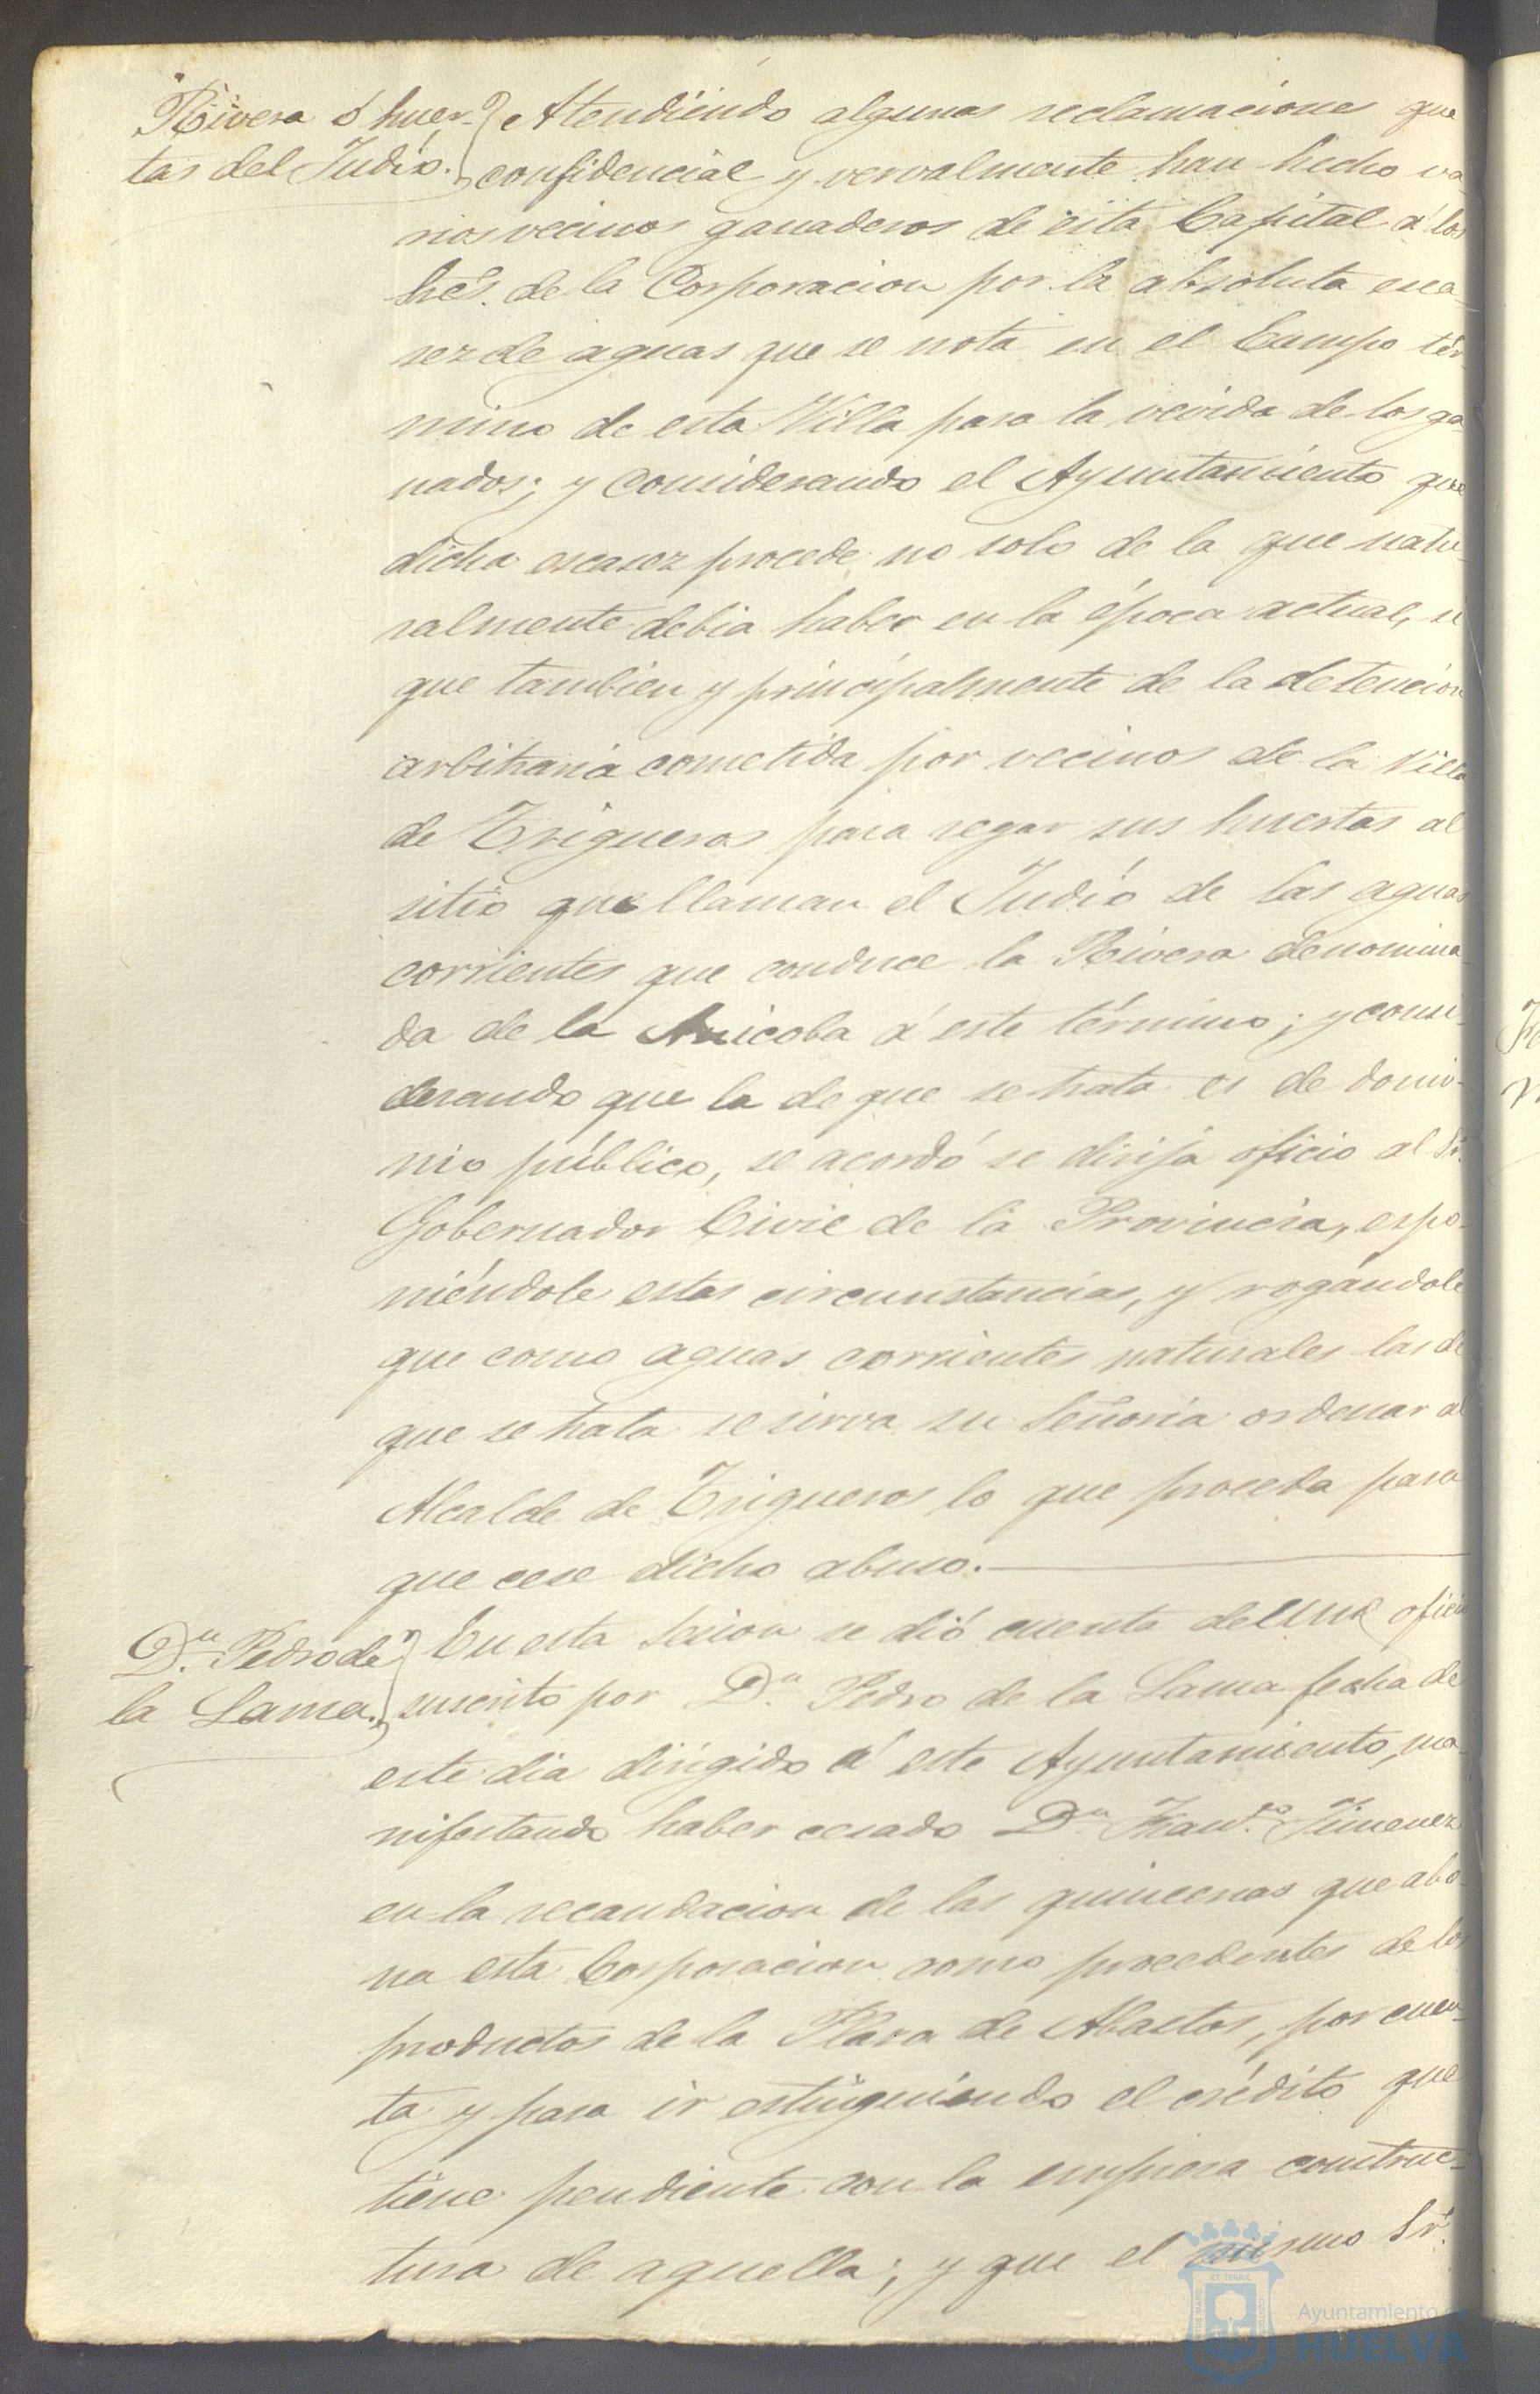 Rivera ó huer-
tas del Judío.
Atendiendo algunas reclamaciones que
confidencial y vervalmente han hecho va-
rios vecinos ganaderos de esta Capital á los
Sres. de la Corporacion por la absoluta esca-
sez de aguas que se nota en el Campo tér-
mino de esta Villa para la vevida de los ga-
nados; y considerando el Ayuntamiento que
dicha escasez procede no solo de la que natu-
ralmente debia haber en la época actual, si
que tambien y principalmente de la detencion
arbitraria cometida por vecinos de la Villa
de Trigueros para regar sus huertas al
sitio que llaman el Judío de las aguas
corrientes que conduce la Rivera denomina-
da de la Anicoba á este término; y consi-
derando que la de que se trata es de domi-
nio público, se acordó se dirija oficio al Sr.
Gobernador Civil de la Provincia, espo-
niéndole estas circunstancias, y rogándole
que como aguas corrientes naturales las de
que se trata se sirva su Señoria ordenar al
Alcalde de Trigueros lo que proceda para
que cese dicho abuso.
Dn. Pedro de
la Lama.
En esta sesion se dió cuenta de un oficio
suscrito por Dn. Pedro de la Lama fecha de
este dia dirigido á este Ayuntamiento, ma-
nifestando haber cesado Dn. Franco. Jimenez
en la recaudacion de las quincenas que abo-
na esta Corporacion como procedentes de los
productos de la Plaza de Abastos, por cuen-
ta y para ir estinguiendo el crédito que
tiene pendiente con la empresa construc-
tura de aquella; y que el mismo Sr.
Ayuntamiento
HUELVA